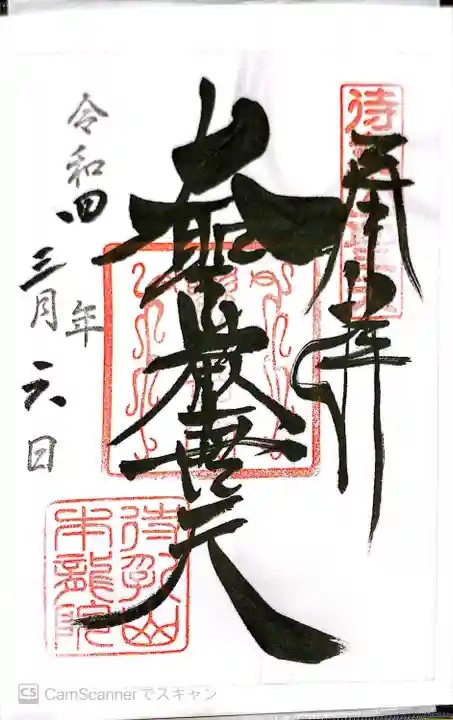 奉拝
待
大聖歓喜天
令和四年
三月六日
待乳山
本龍院
CS CamScannerでスキャン